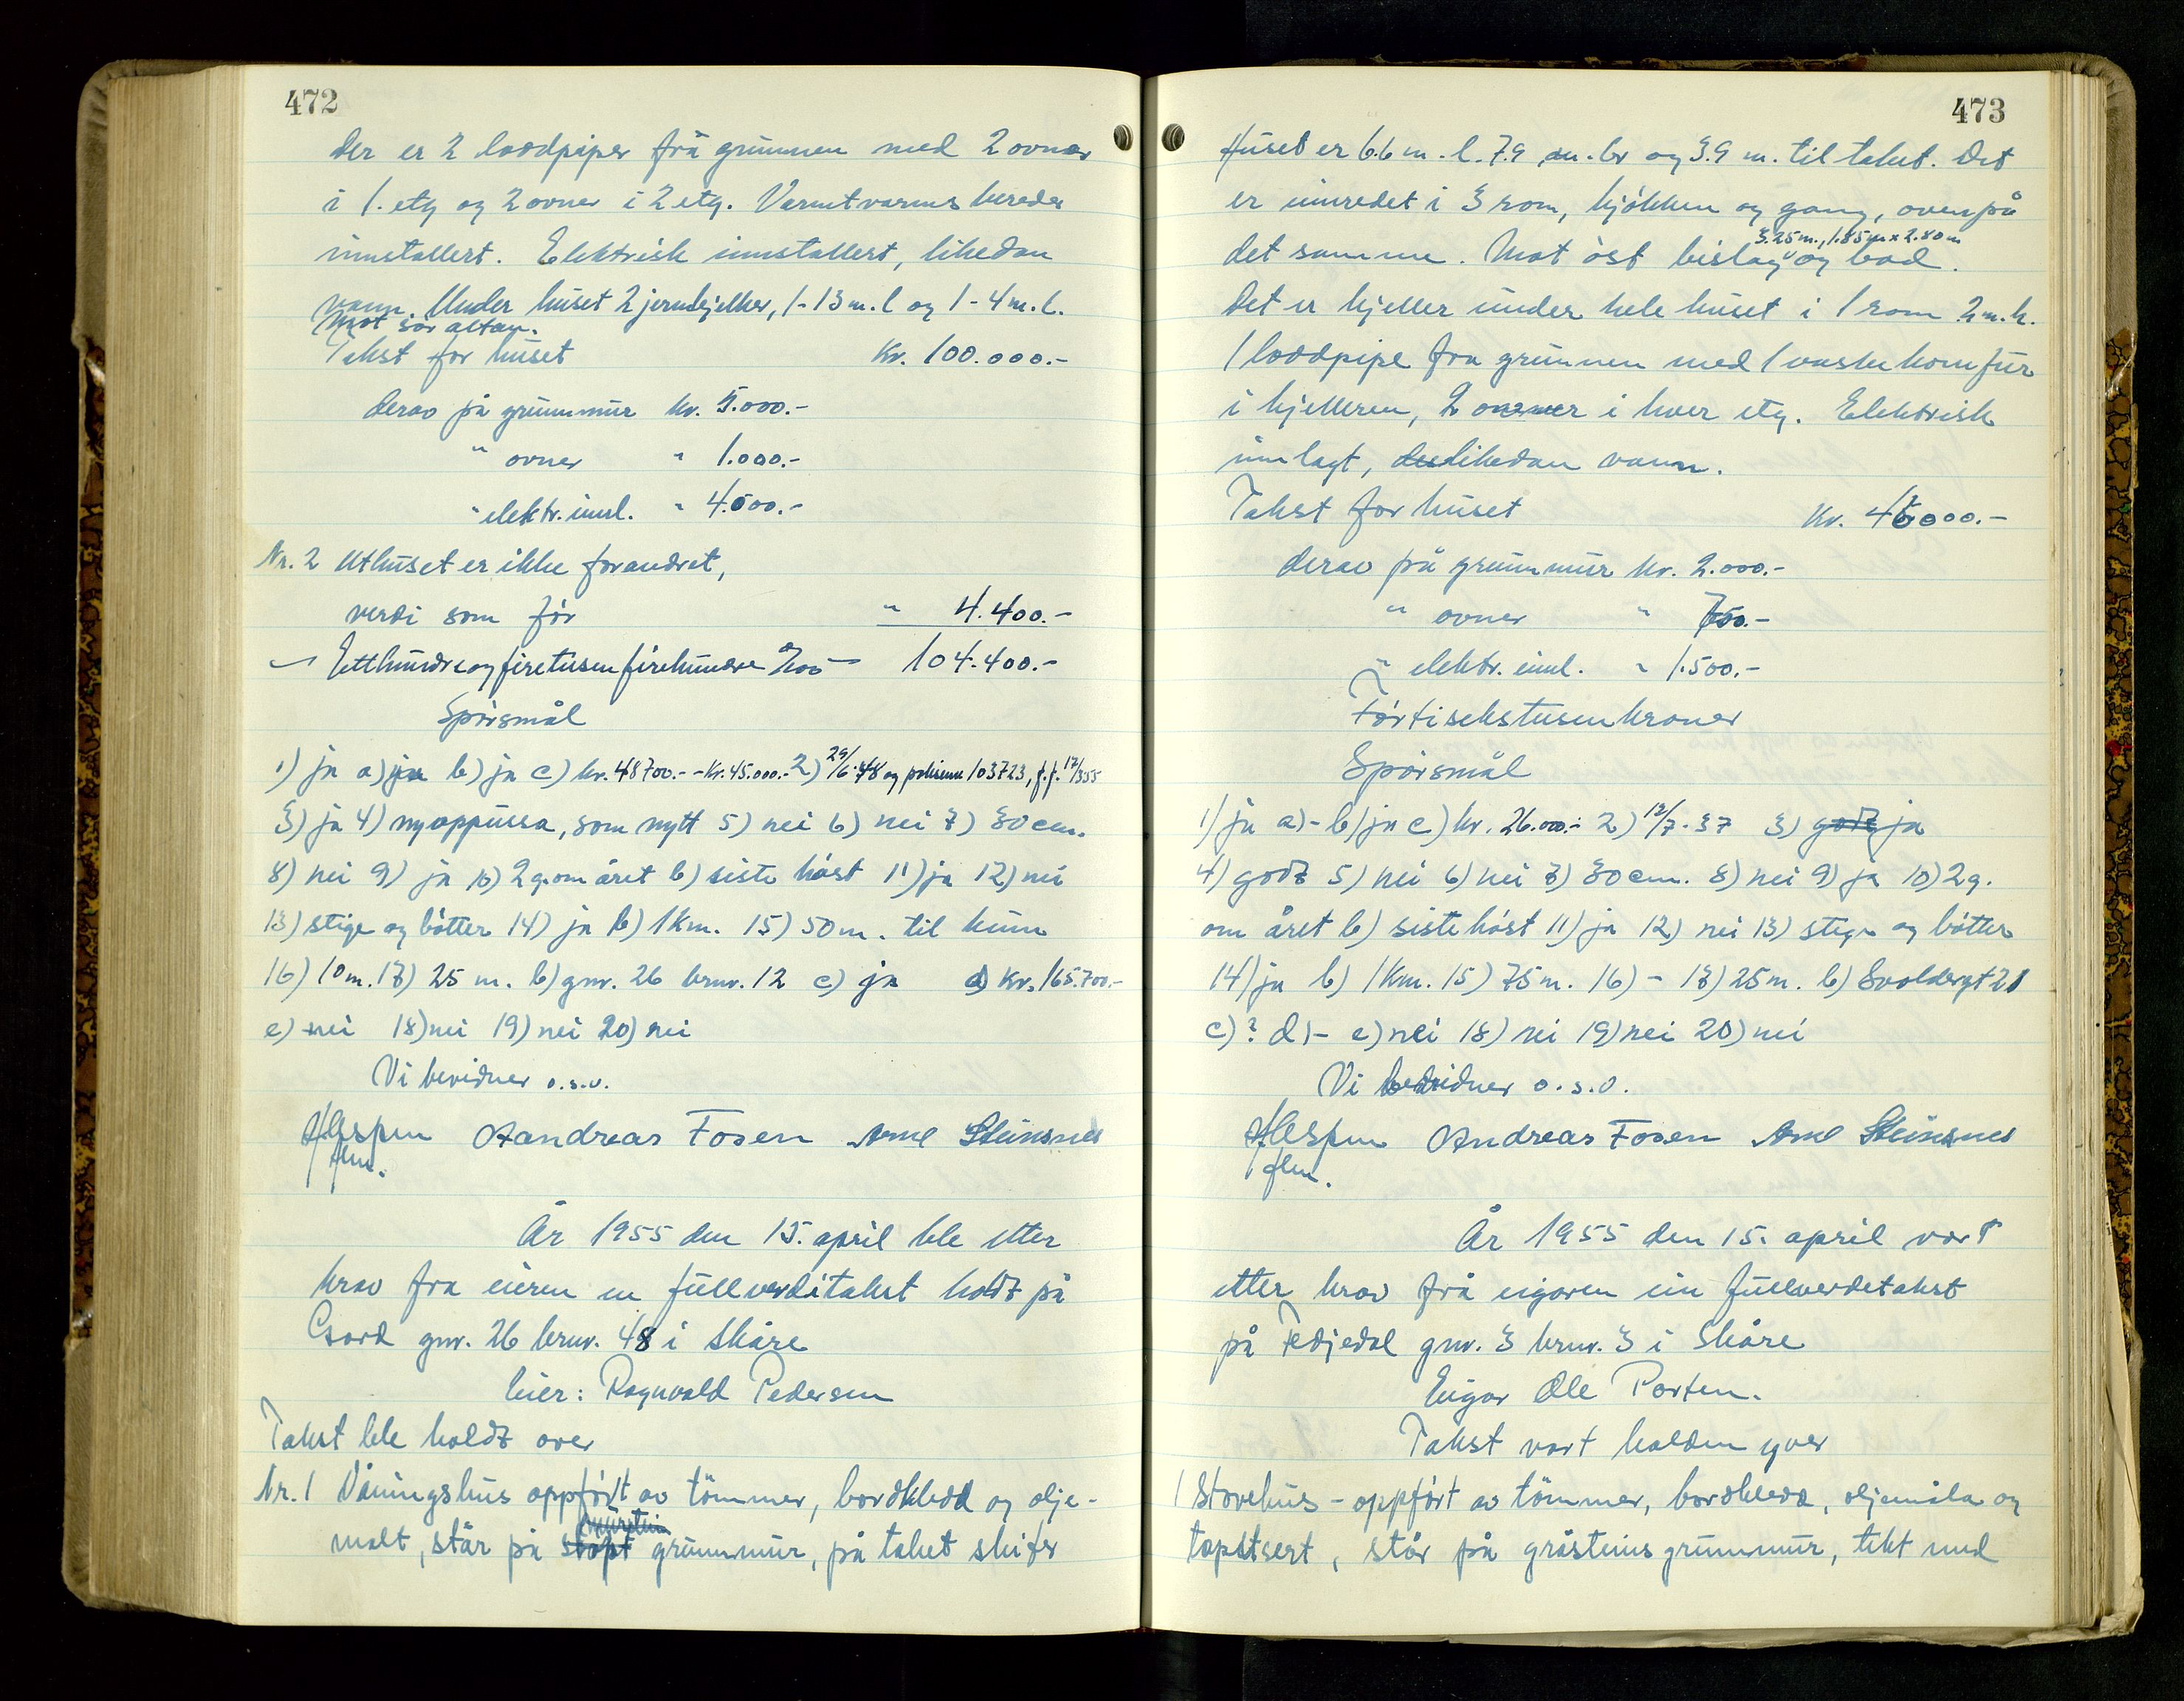 472
der er 2 loddpiper frå grunnen med 2 ovner
i 1. etg og 2 ovner i 2 etg. Varmtvannsbereder
innstallert. Elektrisk innstallert, likedan
vann. Under huset 2 jernbjelker, 1-13 m. l og 1-4 m. l.
Mot sör altan.
Takst for huset Kr. 100.000.-
derav på grunnmur kr. 5.000.-
" ovner " 1.000.-
" elektr. innl. " 4.000.-
Nr. 2 Uthuset er ikke forandret,
verdi som för " 4.400.-
Etthundreogfiretusenfirehundre 104.400.-
Spörsmål
1) ja a) ja b) ja c) kr. 48700.- - kr. 45.000.- 2) 29/6-48 og polisenr 103723, f.f. 17/355
3) ja 4) nyoppussa, som nytt 5) nei 6) nei 7) 30 cm.
8) nei 9) ja 10) 2 g. om året b) siste höst 11) ja 12) nei
13) stige og bötter 14) ja b) 1 km. 15) 50 m. til kum
16) 10 m. 17) 25 m. b) gnr. 26 brnr. 12 c) ja d) Kr. 165.700.-
e) nei 18) nei 19) nei 20) nei
Vi bevidner o.s.v.
Espen Aandreas Fosen Arne Steinsnes
flm.
År 1955 den 15. april ble etter
krav fra eieren en fullverditakst holdt på
Gard gnr. 26 brnr. 48 i Skåre
Eier: Ragnvald Pedersen
Takst ble holdt over
Nr. 1 Våningshus oppfört av tömmer, bordkledd og olje-
murstein
malt, står på stöpt grunnmur, på taket skifer
473
Huset er 6.6 m. l. 7.9 m. br og 3.9 m. til taket. Det
er innredet i 3 rom, kjökken og gang, ovenpå
3.25 m., 1.85 m x 2.80 m
det samme. Mot öst bislag og bad.
Det er kjeller under hele huset i 1 rom 2 m. h.
1 loddpipe fra grunnen med 1 vaskekomfur
i kjelleren, 2 ovner i hver etg. Elektrisk
innlagt, des likedan vann.
Takst for huset Kr. 46000.-
derav på grunnmur kr. 2.000.-
" ovner " 750.-
" elektr. innl. " 1.500.-
Förtisekstusenkroner
Spörsmål
1) ja a) - b) ja c) kr. 26.000.- 2) 12/7-37 3) godt ja
4) godt 5) nei 6) nei 7) 30 cm. 8) nei 9) ja 10) 2 g.
om året b) siste höst 11) ja 12) nei 13) stige og bötter
14) ja b) 1 km. 15) 75 m. 16) - 17) 25 m. b) Svoldergt 21
c) ? d) - e) nei 18) nei 19) nei 20) nei
Vi bevidner o.s.v.
Espen Andreas Fosen Arne Steinsnes
flm.
År 1955 den 15. april vart
etter krav frå eigaren ein fullverdetakst
på Fedjedal gnr. 3 brnr. 3 i Skåre
Eigar Ole Porten.
Takst vart halden yver
1 Stovehus - oppfört av tömmer, bordkledd, oljemåla og
tapetsert, står på gråsteins grunnmur, tekt med